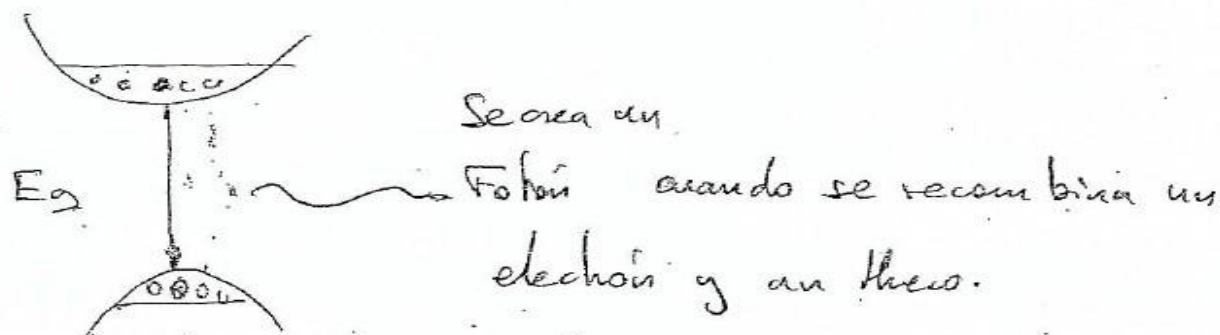 Se crea un
Eg Fotón cuando se recombina un
electrón y un hueco.